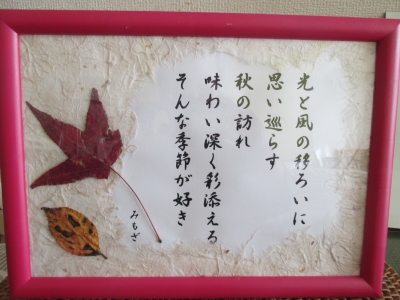 光と風の移ろいに
思い巡らす
秋の訪れ
味わい深く彩添える
そんな季節が好き
みもざ